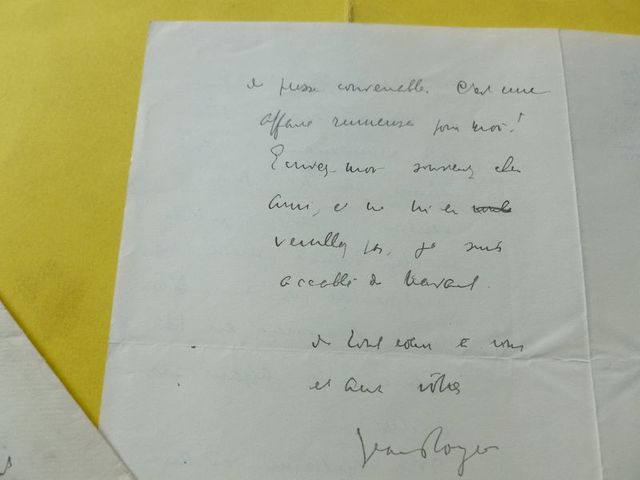 de presse convenable. C'est une
affaire ruineuse pour moi!
Ecrivez-moi souvent cher
ami, et ne m'en
veuillez pas, je suis
accablé de travail.
de tout coeur à vous
et aux vôtres
Jean Royer